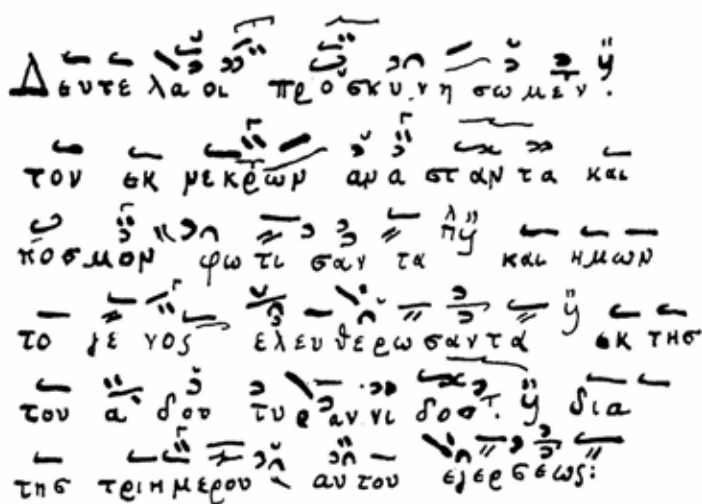 Δευτε λαοι προσκυνησωμεν.
τον εκ νεκρων ανασταντα και
κοσμον φωτισαντα και ημων
το γενος ελευθερωσαντα εκ της
του αδου τυραννιδος. δια
της τριημερου αυτου εγερσεως: